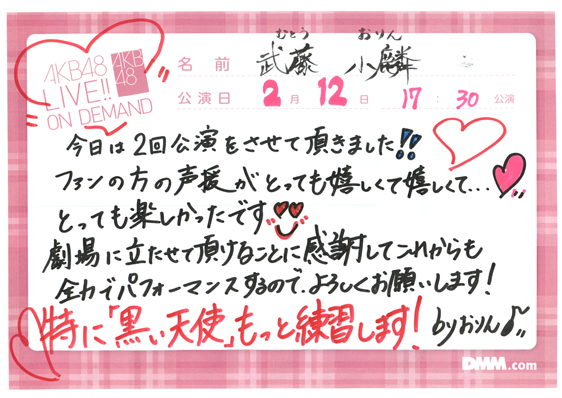 AKB48
LIVE!!
ON DEMAND
AKB
48
むとう おりん
名前 武藤 小麟
公演日 2月12日 17:30公演
今日は2回公演をさせて頂きました!!
ファンの方の声援がとっても嬉しくて嬉しくて...
とっても楽しかったです
劇場に立たせて頂けることに感謝してこれからも
全力でパフォーマンスするので、よろしくお願いします!
特に「黒い天使」もっと練習します! byおりん♪
DMM.com